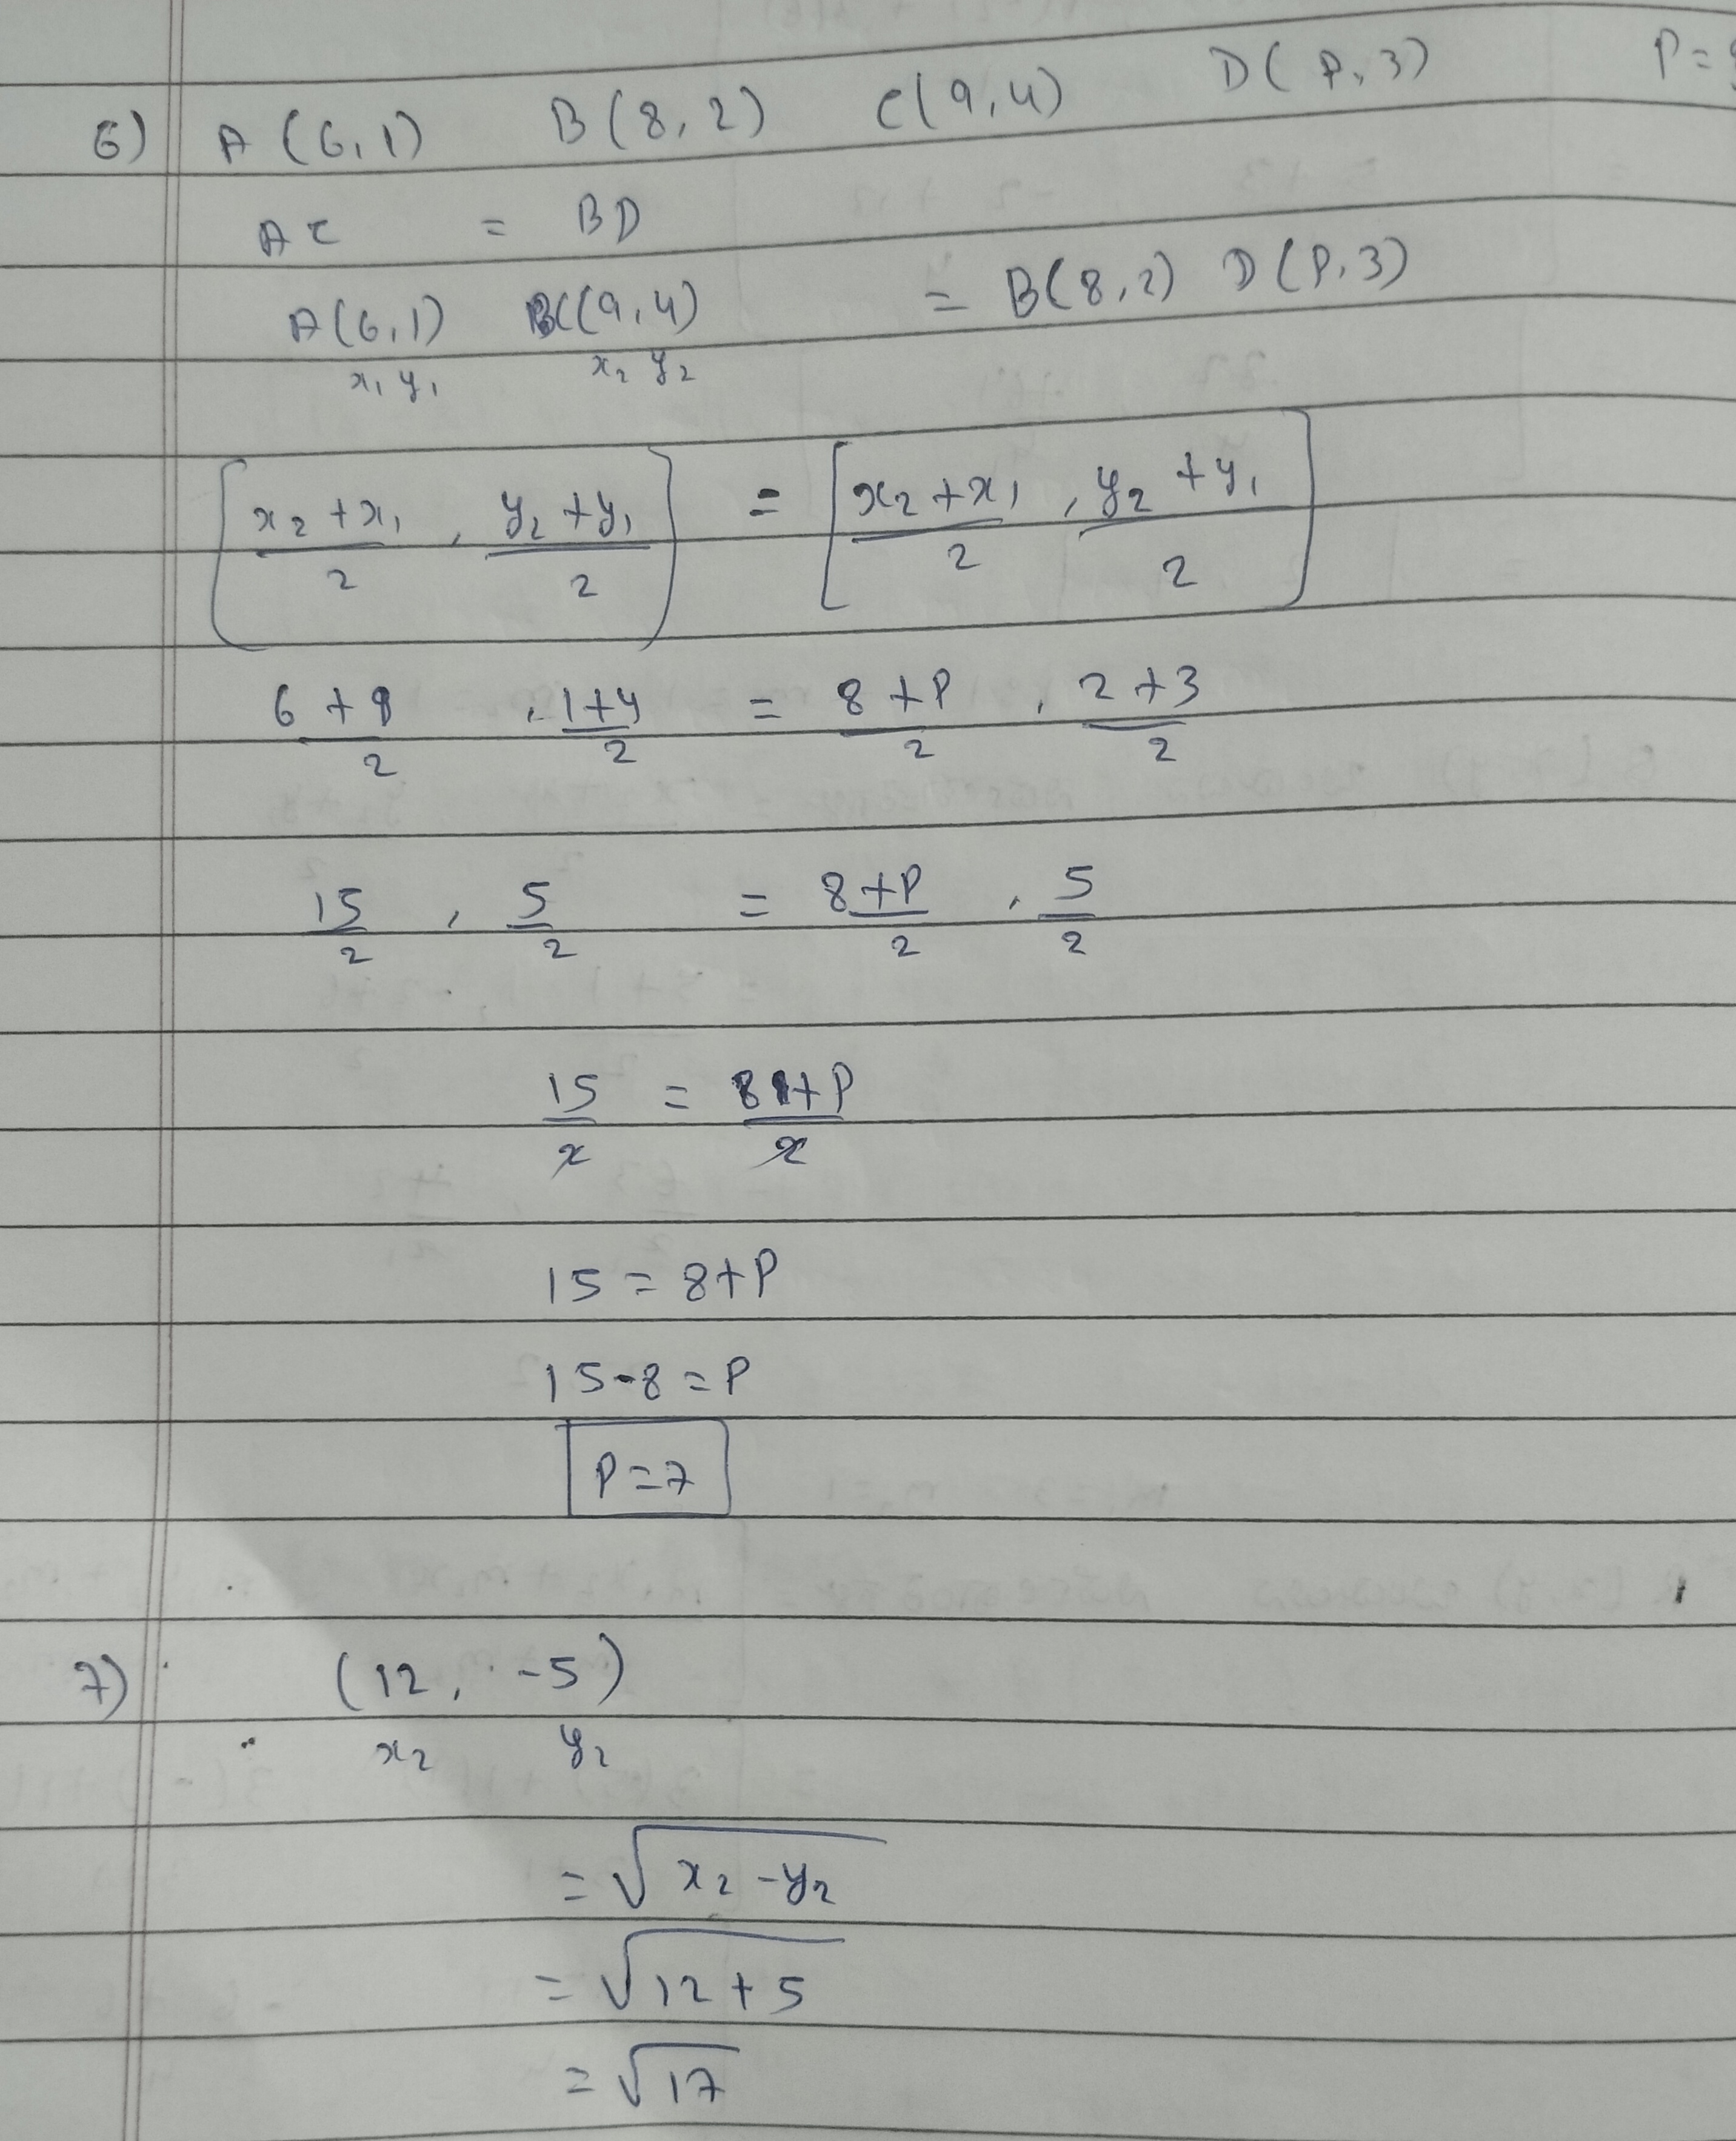 6) A (6,1) B (8,2) C(9,4) D( P, 3) P=
AC = BD
A(6,1) C(9,4) = B(8,2) D(P,3)
x₁ y₁ x₂ y₂
[x₂+x₁/2 , y₂+y₁/2] = [x₂+x₁/2 , y₂+y₁/2]
6+9/2 , 1+4/2 = 8+P/2 , 2+3/2
15/2 , 5/2 = 8+P/2 , 5/2
15/2 = 8+P/2
15 = 8+P
15-8=P
P=7
7) (12, -5)
x₂ y₂
= √x₂-y₂
= √12+5
= √17